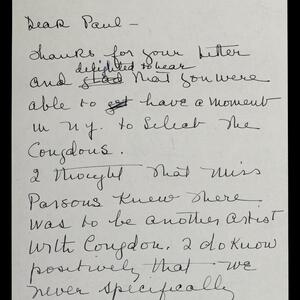 Dear Paul –
Thanks for your letter
delighted to hear
and glad that you were
able to get have a moment
in N.Y. to select the
Congdons.
I thought that Miss
Parsons knew there
was to be another artist
with Congdon. I do know
positively that we
never specifically